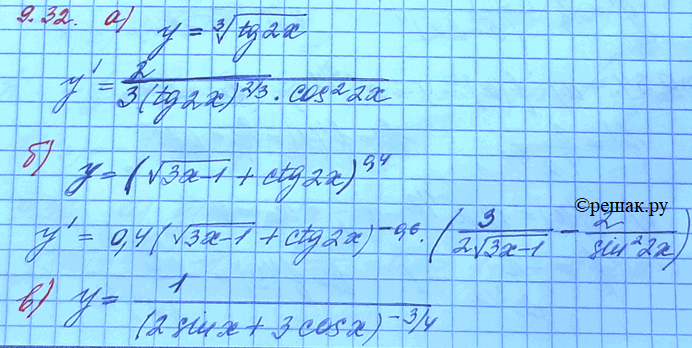 9.32. а) y = ∛(tg2x)
y' = 2 / (3(tg2x)^(2/3) · cos²2x)
б) y = (√(3x-1) + ctg2x)^0,4
y' = 0,4(√(3x-1) + ctg2x)^(-0,6) · (3/(2√(3x-1)) - 2/(sin²2x))
©решак.ру
в) y = 1 / (2sinx + 3cosx)^(-3/4)